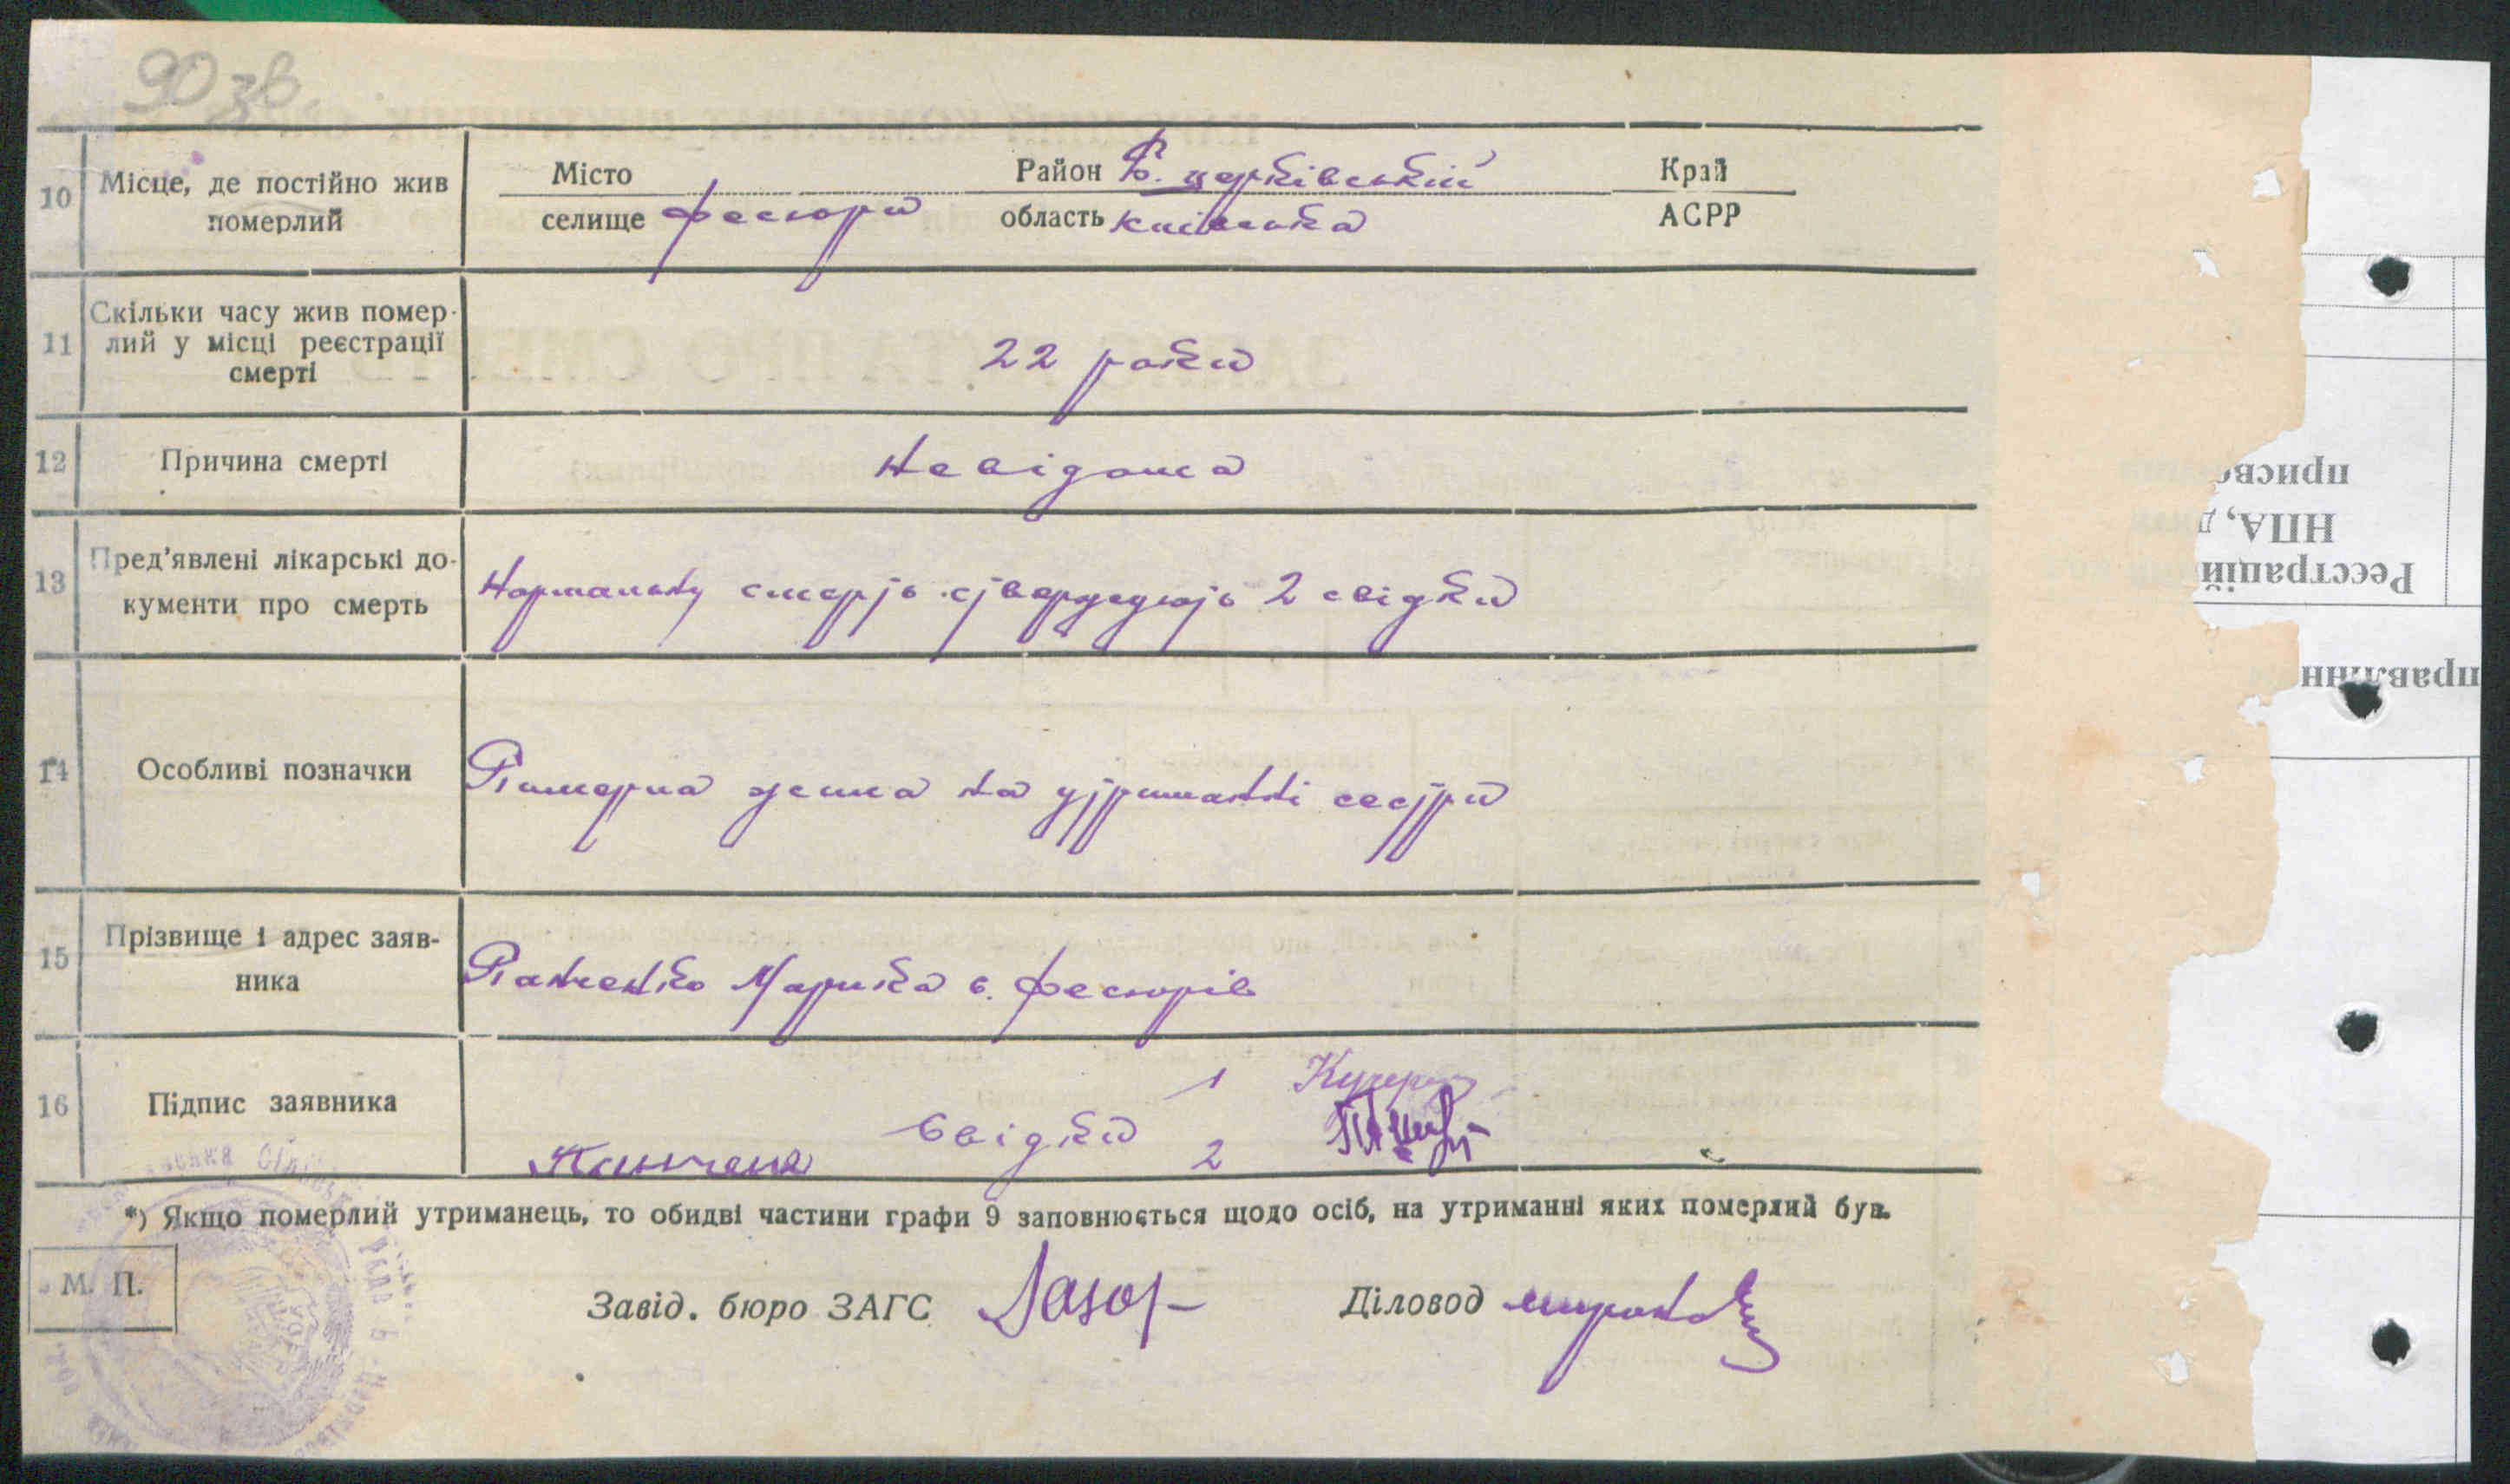 90 зв.
10 Місце, де постійно жив померлий
Місто Район Б. церківський Край
селище Фесюри область київська АСРР
11 Скільки часу жив помер-
лий у місці реєстрації
смерті
22 роки
12 Причина смерті Невідома
13 Пред'явлені лікарські до-
кументи про смерть
Нормальну смерть стверджують 2 свідки
14 Особливі позначки
Померла жила на утриманні сестри
15 Прізвище і адрес заяв-
ника
Панченко Марика с. Фесюрів
16 Підпис заявника
Свідки 1 Кучер
2
*) Якщо померлий утриманець, то обидві частини графи 9 заповнюється щодо осіб, на утриманні яких померлий був.
М. П.
Завід. бюро ЗАГС Лазор Діловод
присво
НПА, д
Реєстрацій
правлінн